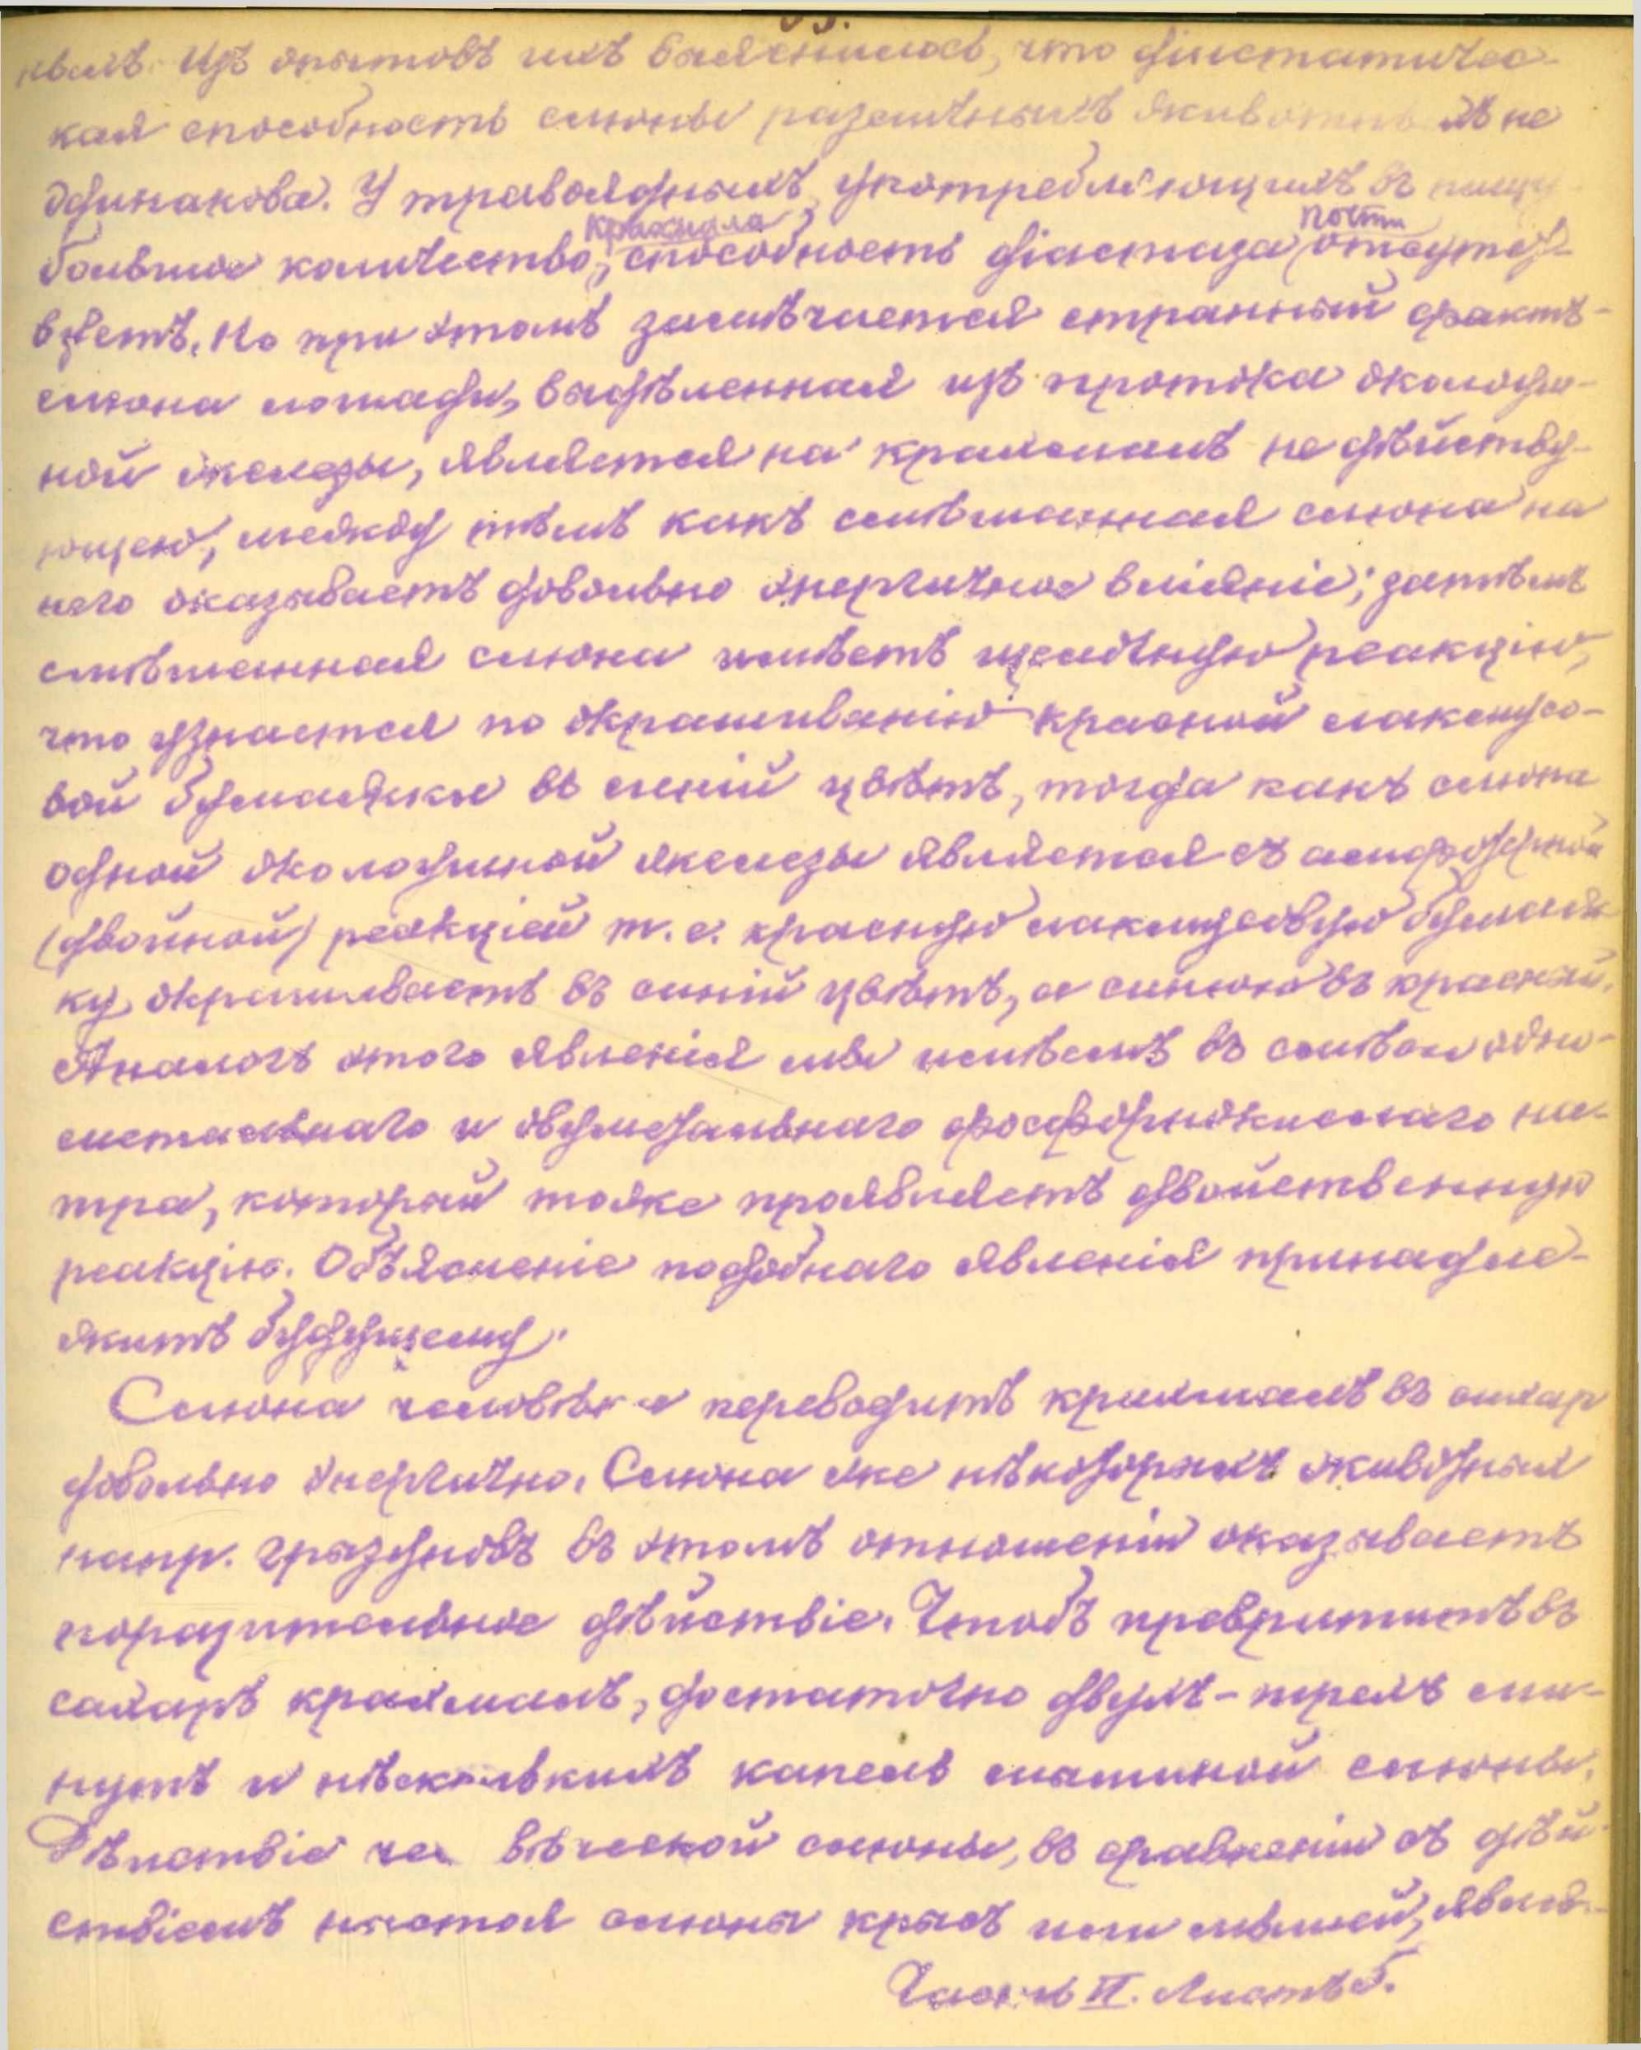 33.
ныхъ. Изъ опытовъ ихъ выяснилось, что діастатичес-
кая способность слюны различныхъ животныхъ не
одинакова. У травоядныхъ, употребляющихъ въ пищу
большое количество крахмала, способность діастаза почти отсутст-
вуетъ. Но при этомъ замѣчается странный фактъ-
слюна лошади, выдѣленная изъ протока околоуш-
ной железы, является на крахмалъ не дѣйству-
ющею, между тѣмъ какъ смѣшанная слюна на
него оказываетъ довольно энергичное вліяніе; затѣмъ
смѣшанная слюна имѣетъ щелочную реакцію,
что узнается по окрашиванію красной лакмусо-
вой бумажки въ синій цвѣтъ, тогда какъ слюна
одной околоушной железы является съ амфотерной
(двойной) реакціей т. е. красную лакмусовую бумаж-
ку окрашиваетъ въ синій цвѣтъ, а синюю въ красный.
Аналогъ этого явленія мы имѣемъ въ смѣси одно-
металльнаго и двуметалльнаго фосфорнокислаго на-
тра, который тоже проявляетъ двойственную
реакцію. Объясненіе подобнаго явленія принадле-
житъ будущему.
Слюна человѣка переводитъ крахмалъ въ сахар
довольно энергично. Слюна же нѣкоторыхъ животныхъ
напр. грызуновъ въ этомъ отношеніи оказываетъ
поразительное дѣйствіе. Чтобъ превратить въ
сахаръ крахмалъ, достаточно двухъ-трехъ ми-
нутъ и нѣсколькихъ капель мышиной слюны.
Дѣйствіе человѣческой слюны, въ сравненіи съ дѣй-
ствіемъ настоя слюны крысъ или мышей, являе-
Часть II. Листъ 5.